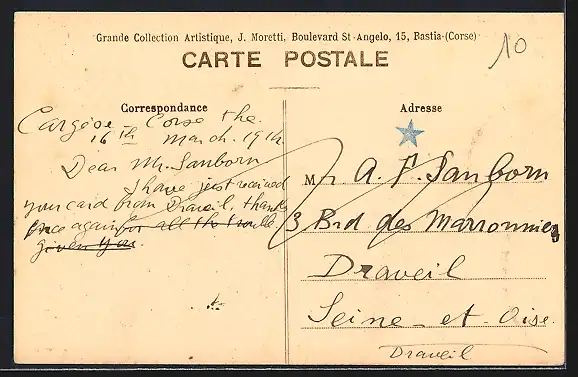 Grande Collection Artistique, J. Moretti, Boulevard St-Angelo, 15, Bastia-(Corse)
CARTE POSTALE
10
Correspondance
Cargèse - Corse the
16th March. 1914.
Dear Mr. Sanborn
I have just received
your card from Draveil, thanks
once again for all the trouble
given you.
Adresse
Mr A. F. Sanborn
3 Bvd des Marronniers
Draveil
Seine-et-Oise.
Draveil